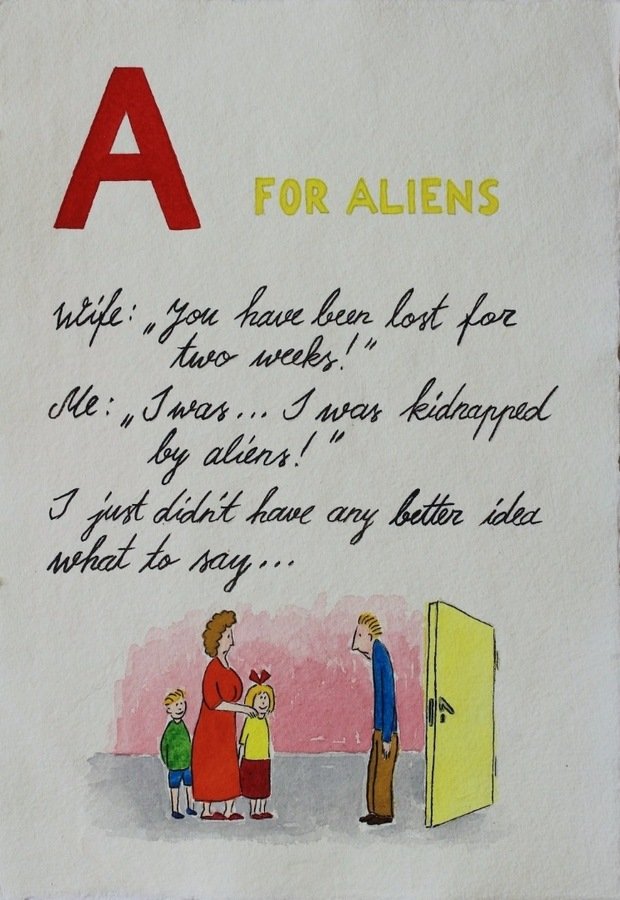 A
FOR ALIENS
Wife: „You have been lost for
two weeks!”
Me: „I was... I was kidnapped
by aliens!”
I just didn't have any better idea
what to say...